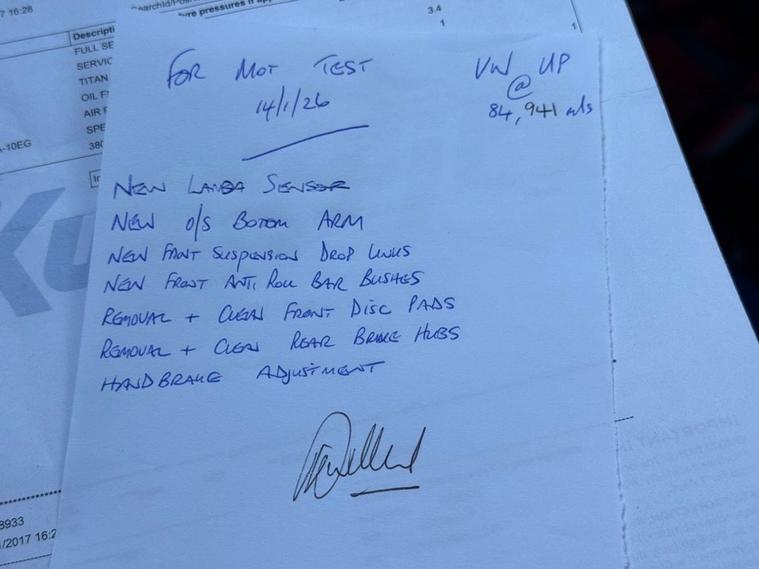 7 16:28
3.4
1
1
Descripti
FULL SE
SERVIC
TITAN
OIL F
AIR F
SPE
-10EG
380
FOR MOT TEST
14/1/26
VW UP
@
84,941 mls
NEW LAMBA SENSOR
NEW O/S BOTOM ARM
NEW FRONT SUSPENSION DROP LINKS
NEW FRONT ANTI ROLL BAR BUSHES
REMOVAL + CLEAN FRONT DISC PADS
REMOVAL + CLEAN REAR BRAKE HUBS
HANDBRAKE ADJUSTMENT
Ku
8933
/2017 16:2
IMPORTANT